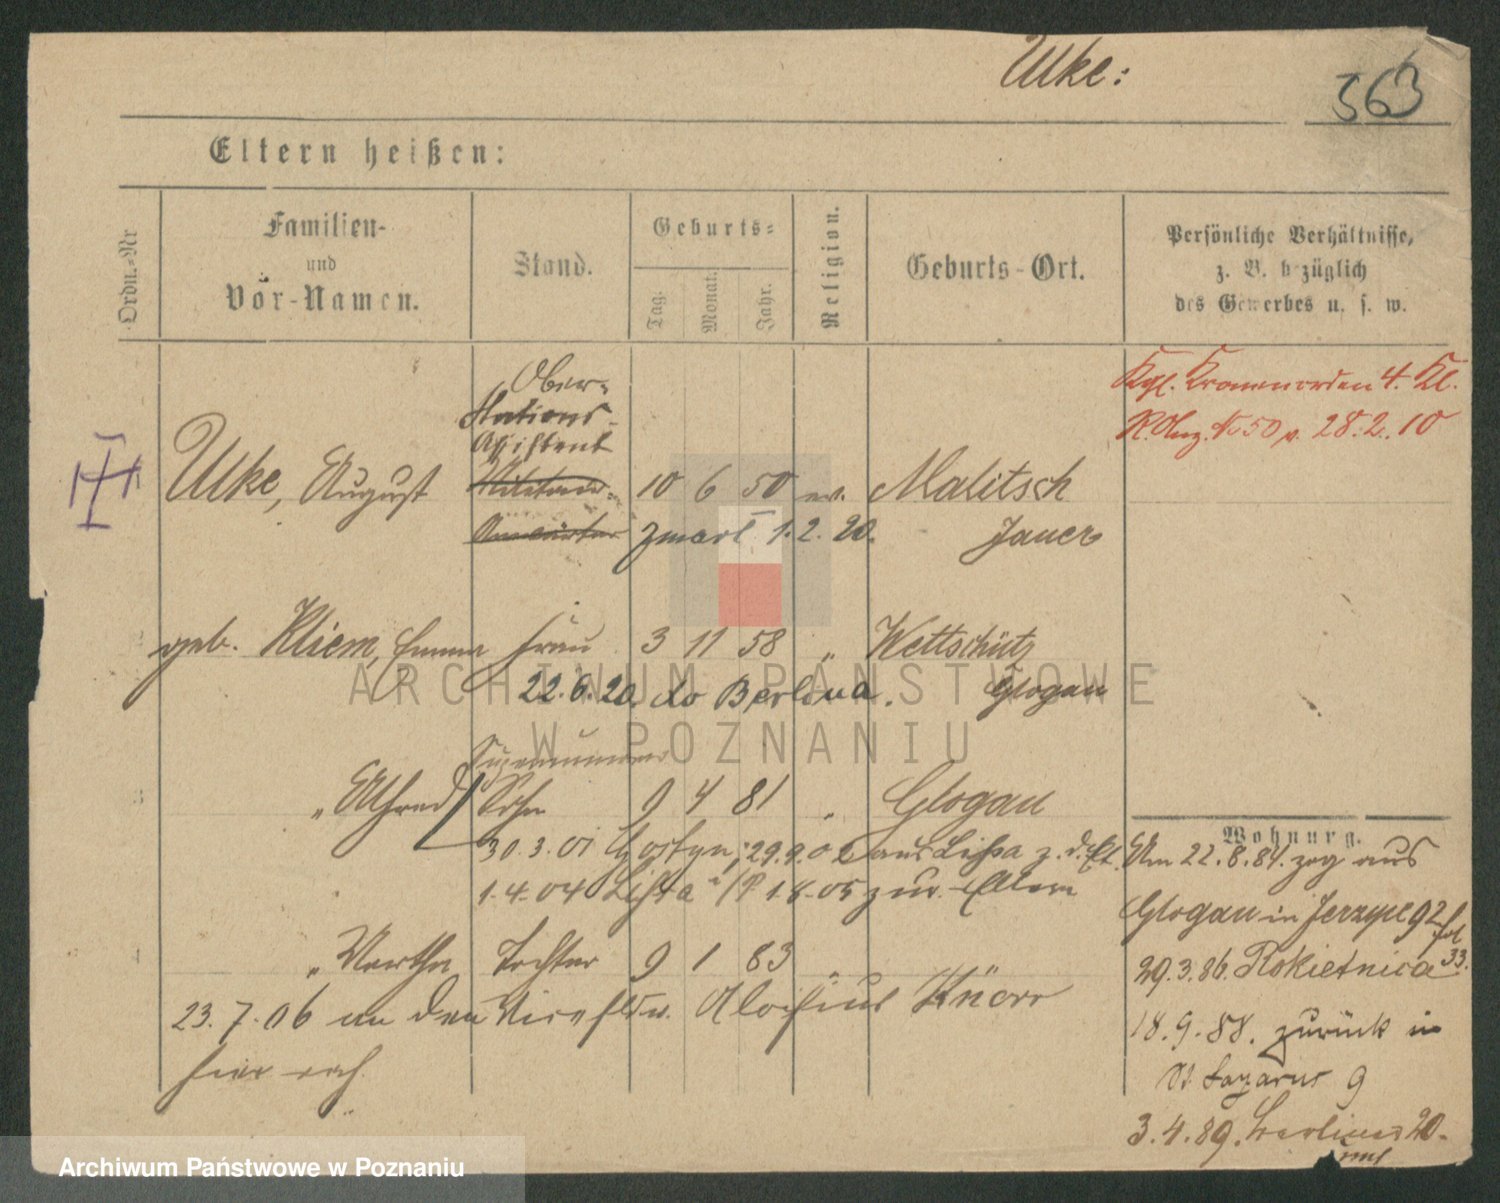 Ulke:
563
Eltern heißen:
Ordn.-Nr
Familien-
und
Vor-Namen.
Stand.
Geburts-
Tag.
Monat.
Jahr.
Religion.
Geburts-Ort.
Persönliche Verhältnisse,
z. B. bezüglich
des Gewerbes u. s. w.
Kgl. Kronenorden 4. Kl.
R. Anz. No 50 v. 28.2.10
Ober-
Stations-
Assistent
Ulke, August Militär- 10 6 50 ev. Malitsch
Anwärter zmarł 1.2.20. Jauer
geb. Kliem, Emma Frau 3 11 58 " Wettschütz
22.6.20. do Berlina. Glogau
" Alfred Sohn 9 4 81 " Glogau
30.3.01 Gostyn; 29.9.02 aus Lissa z. d. Elt.
1.4.04 Lissa i/P 1.8.05 zur. Eltern
" Martha Tochter 9 1 83 "
23.7.06 an den Aloisius Knorr
hier verh.
Wohnung.
Am 22.8.84. zog aus
Glogau in Jerzyce 92
fol
33.
29.3.86. Rokietnica
18.9.88. zurück in
St Lazarus 9
3.4.89. Berliner 20.
ARCHIWUM PAŃSTWOWE
W POZNANIU
Archiwum Państwowe w Poznaniu